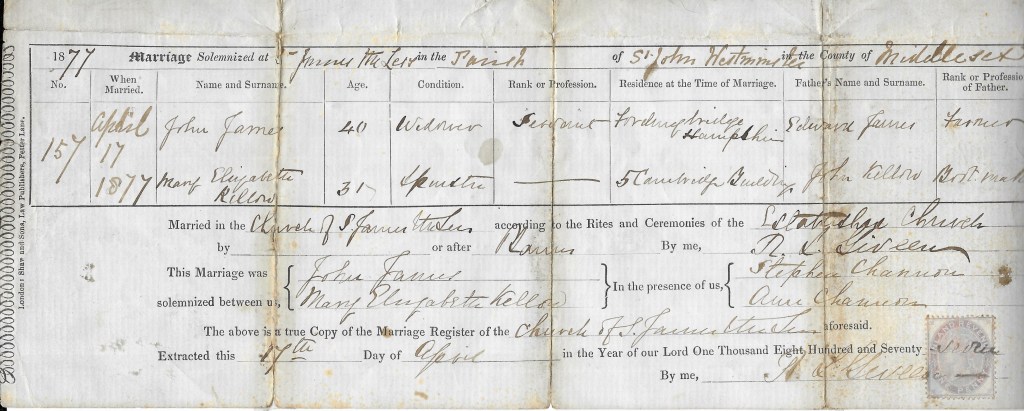 1877 Marriage Solemnized at St James the Less in the Parish of St. John Westminster in the County of Middlesex
No. When Married. Name and Surname. Age. Condition. Rank or Profession. Residence at the Time of Marriage. Father's Name and Surname. Rank or Profession of Father.
157 April 17 1877 John James 40 Widower Servant Fordingbridge Hampshire Edward James Farmer
Mary Elizabeth Kellow 31 Spinster 5 Cambridge Buildings John Kellow
Married in the Church of S. James the Less according to the Rites and Ceremonies of the Established Church
by or after Banns By me,
This Marriage was solemnized between us, John James Mary Elizabeth Kellow In the presence of us, Stephen Channon Ann Channon
The above is a true Copy of the Marriage Register of the Church of S. James the Less aforesaid.
Extracted this 17th Day of April in the Year of our Lord One Thousand Eight Hundred and Seventy Seven
By me,
London: Shaw and Sons, Law Publishers, Fetter Lane.